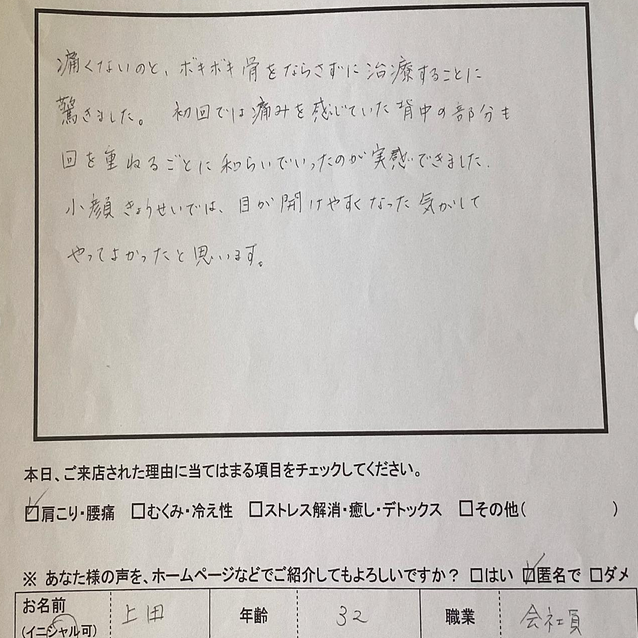 痛くないのと、ボキボキ骨をならさずに治療することに
驚きました。 初回では痛みを感じていた背中の部分も
回を重ねるごとに和らいでいったのが実感できました.
小顔きょうせいでは、目が開けやすくなった気がして
やってよかったと思います。
本日、ご来店された理由に当てはまる項目をチェックしてください。
☑肩こり・腰痛 □むくみ・冷え性 □ストレス解消・癒し・デトックス □その他( )
※ あなた様の声を、ホームページなどでご紹介してもよろしいですか? □はい ☑匿名で □ダメ
お名前 上田 年齢 32 職業 会社員
(イニシャル可)